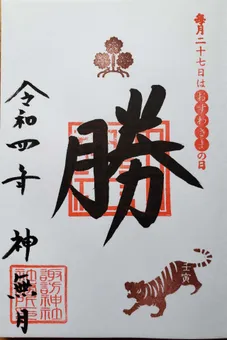 毎月二十七日はおすわさまの日
勝
壬寅
令和四年 神無月
諏訪神社